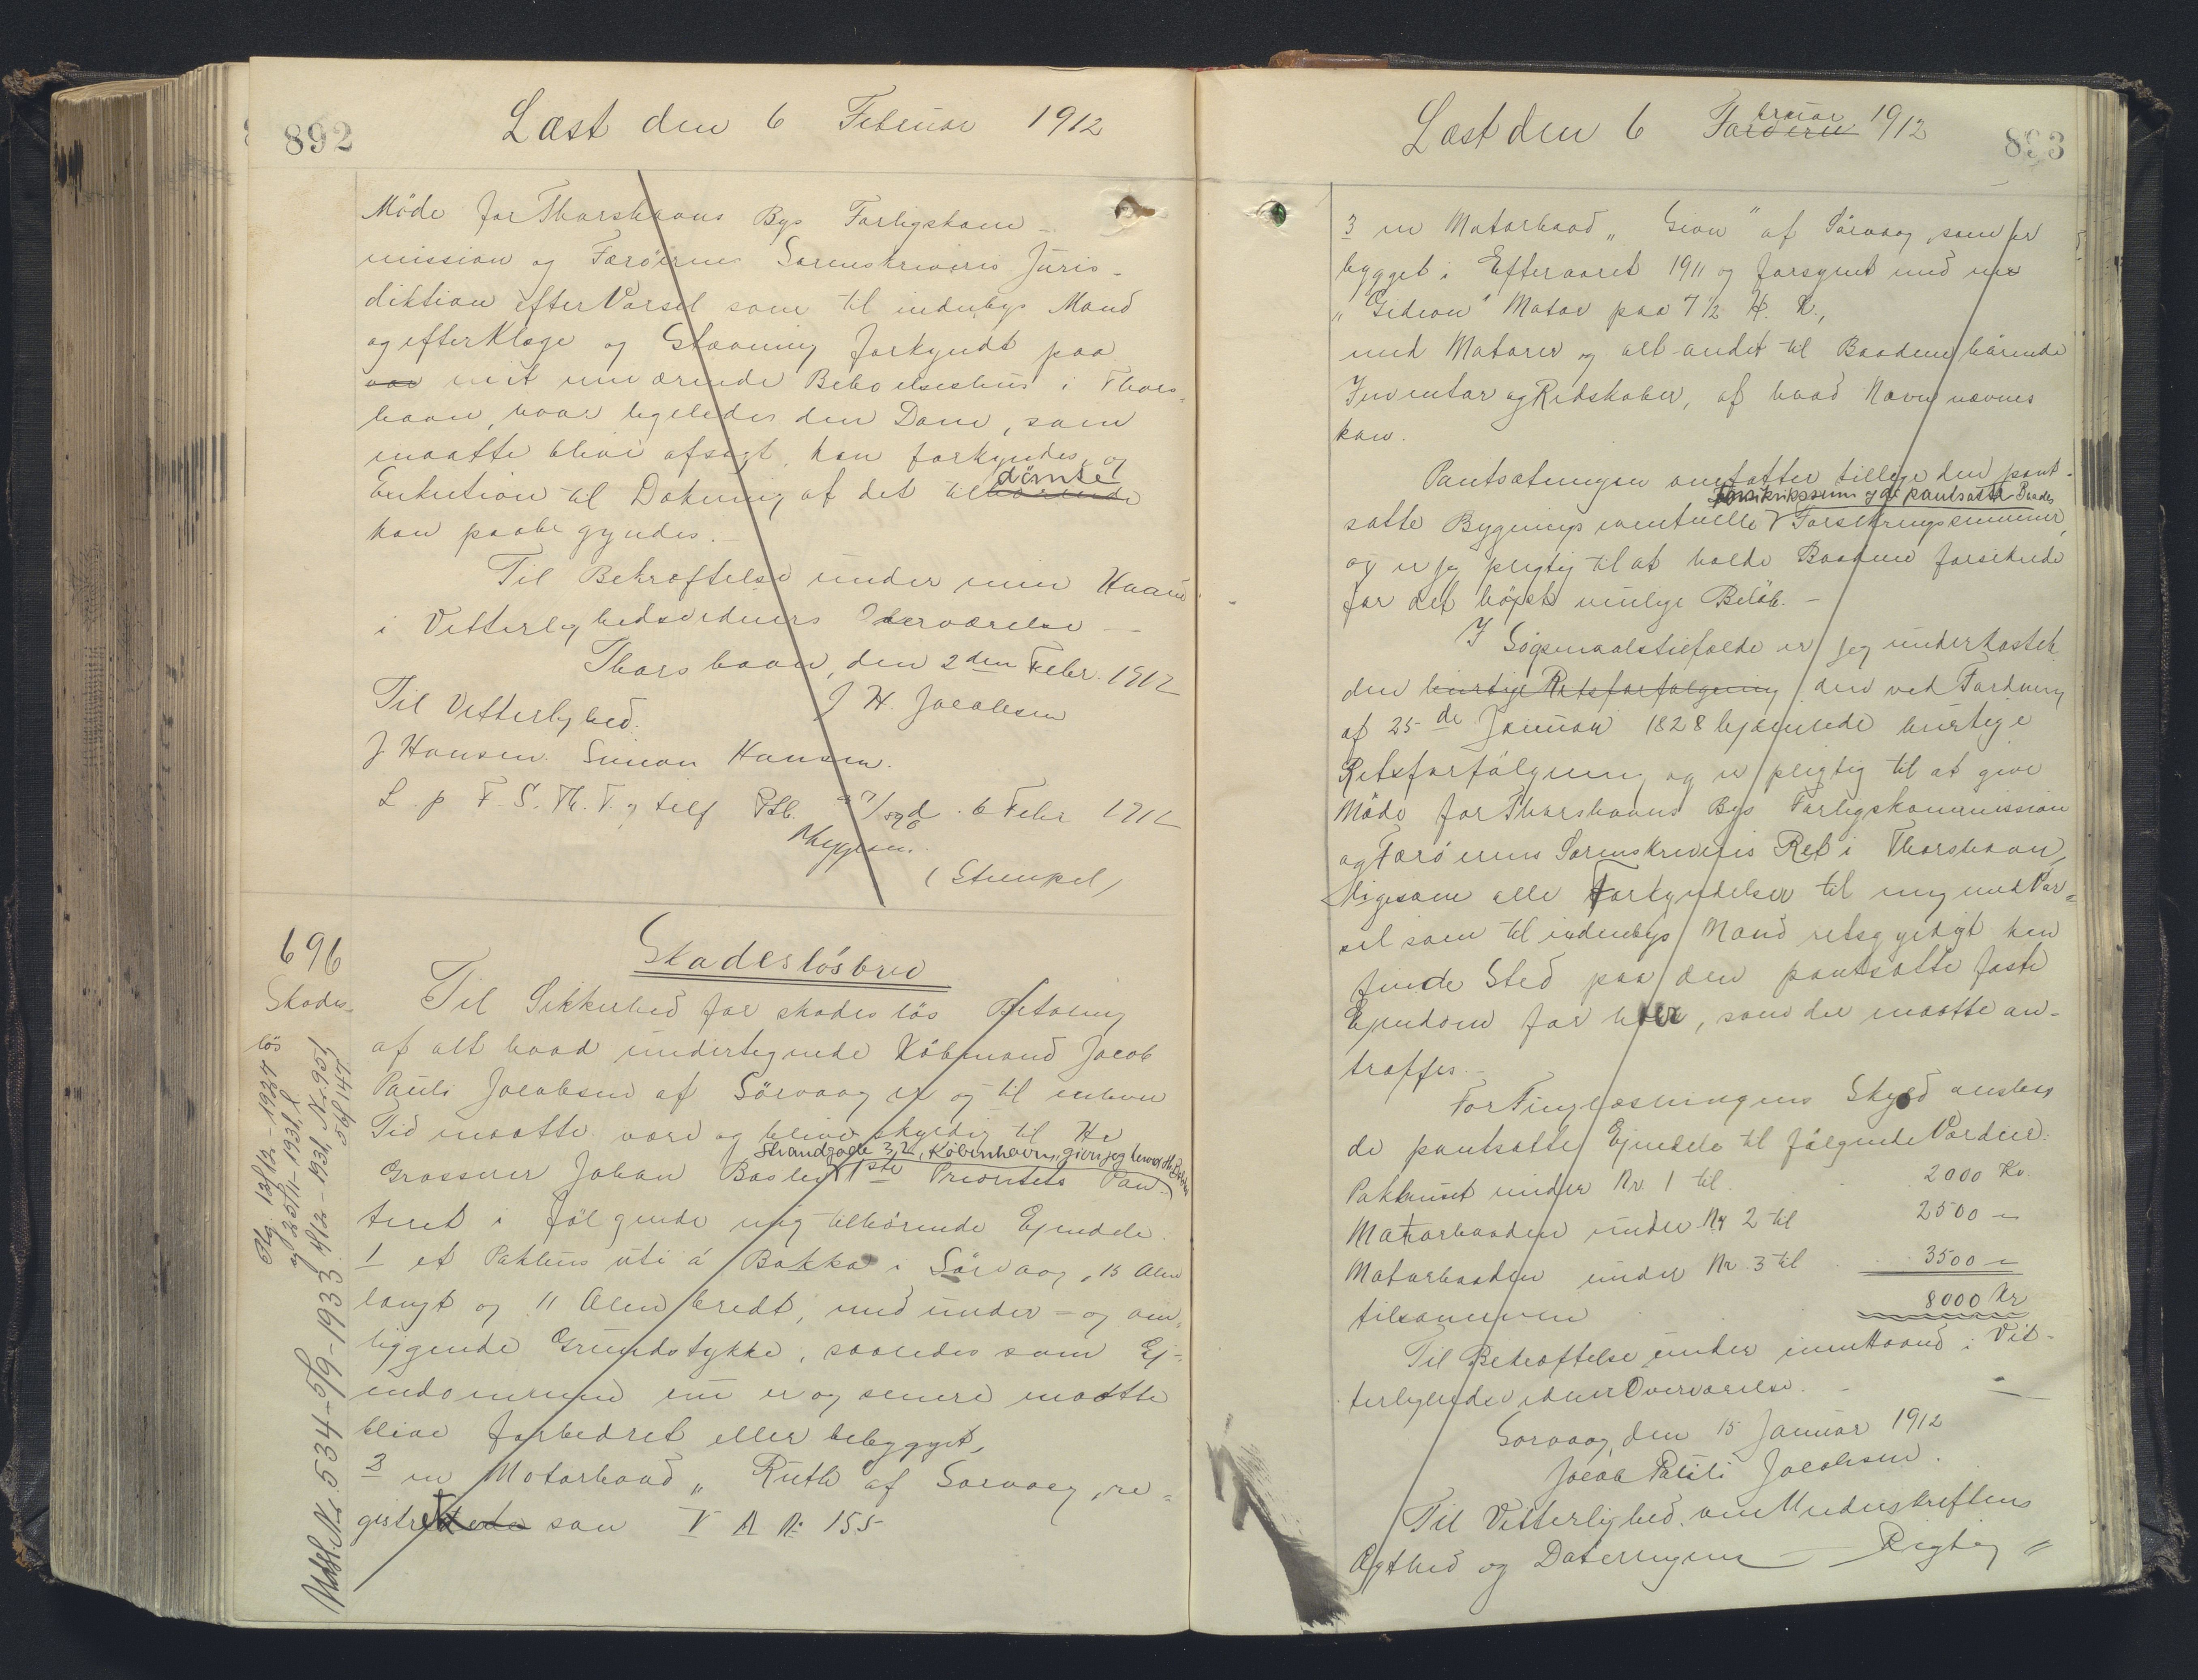 892
Læst den 6 Februar 1912
Møde for Thorshavns Bys Forligskom-
mission og Færöernes Sorenskriveris Juris-
diktion efter Varsel som til indenbys Mand
og efter Klage og Stævning forkyndt paa
mit nuværende Beboelseshus i Thors-
havn, hvor ligeledes den Dom, som
maatte blive afsagt, kan forkyndes, og
Exekution til Dækning af det tildömte
kan paabegyndes.
Til Bekræftelse under min Haand
i Vitterlighedsvidners Overværelse
Thorshavn, den 2den Febr. 1912
J H. Jacobsen
Til Vitterlighed:
J Hansen. Simon Hansen.
L. p F. S. Th. T. d. 6 Febr 1912
(Stempel)
696
Skades-
lös
Skadeslösbrev
Til Sikkerhed for skadeslös Betaling
af alt hvad undertegnede Köbmand Jacob
Pauli Jacobsen af Sörvaag er og til enhver
Tid maatte være og blive skyldig til Hr
Strandgade 3, Köbenhavn, giver jeg herved
Grosserer Johan 1ste Prioritets Pan-
teret i fölgende mig tilhörende Ejendele.
1 et Pakhus uti á Bakka i Sörvaag, 13 Alen
langt og 11 Alen bredt, med under- og om-
liggende Grundstykke, saaledes som Ej-
endommene nu er og senere maatte
blive forbedret eller bebygget,
2 en Motorbaad „Ruth af Sorvaag, re-
gistreret som V A Nr 155
Slg 13/12-1924
og 25/11-1931
4/12-1931, N. 951
Matrl. Nr. 534-5/9-1933
Læst den 6 Februar 1912
893
3 en Motorbaad „Gion" af Sörvaag, som er
bygget i Efteraaret 1911 og forsynet med
„Gideon" Motor paa 7½ H. K.,
med Motorer og alt andet til Baadene hörende
Inventar og Redskaber, af hvad Navn nævnes
kan.
Pantsætningen omfatter tillige den pant-
Forsikringssum og de pantsatte Baades
satte Bygnings eventuelle Forsikringssummer,
og er jeg pligtig til at holde Baadene forsikrede
for det höjest mulige Belöb.
I Sögsmaalstilfælde er jeg underkastet
den hurtige Retsforfölgning den ved Fordning
af 25de Januar 1828 hjemlede hurtige
Retsforfölgning og er pligtig til at give
Möde for Thorshavns Bys Forligskommission
og Færöernes Sorenskriveris Ret i Thorshavn,
ligesom alle Forkyndelser til mig med Var-
sel som til indenbys Mand retsgyldigt kan
finde Sted paa den pantsatte faste
Ejendom for hver, som der maatte an-
træffes.
For Tinglæsningens Skyld ansættes
de pantsatte Ejendele til fölgende Værdier:
Pakhuset under Nr. 1 til 2000 Kr.
Motorbaaden under Nr 2 til 2500 -
Motorbaaden under Nr. 3 til 3500 -
tilsammen 8000 Kr
Til Bekræftelse under min Haand i Vit-
terlighedsvidners Overværelse.
Sorvaag, den 15 Januar 1912
Jacob Pauli Jacobsen.
Til Vitterlighed om Underskriftens
Ægthed og Dateringens Rigtig=